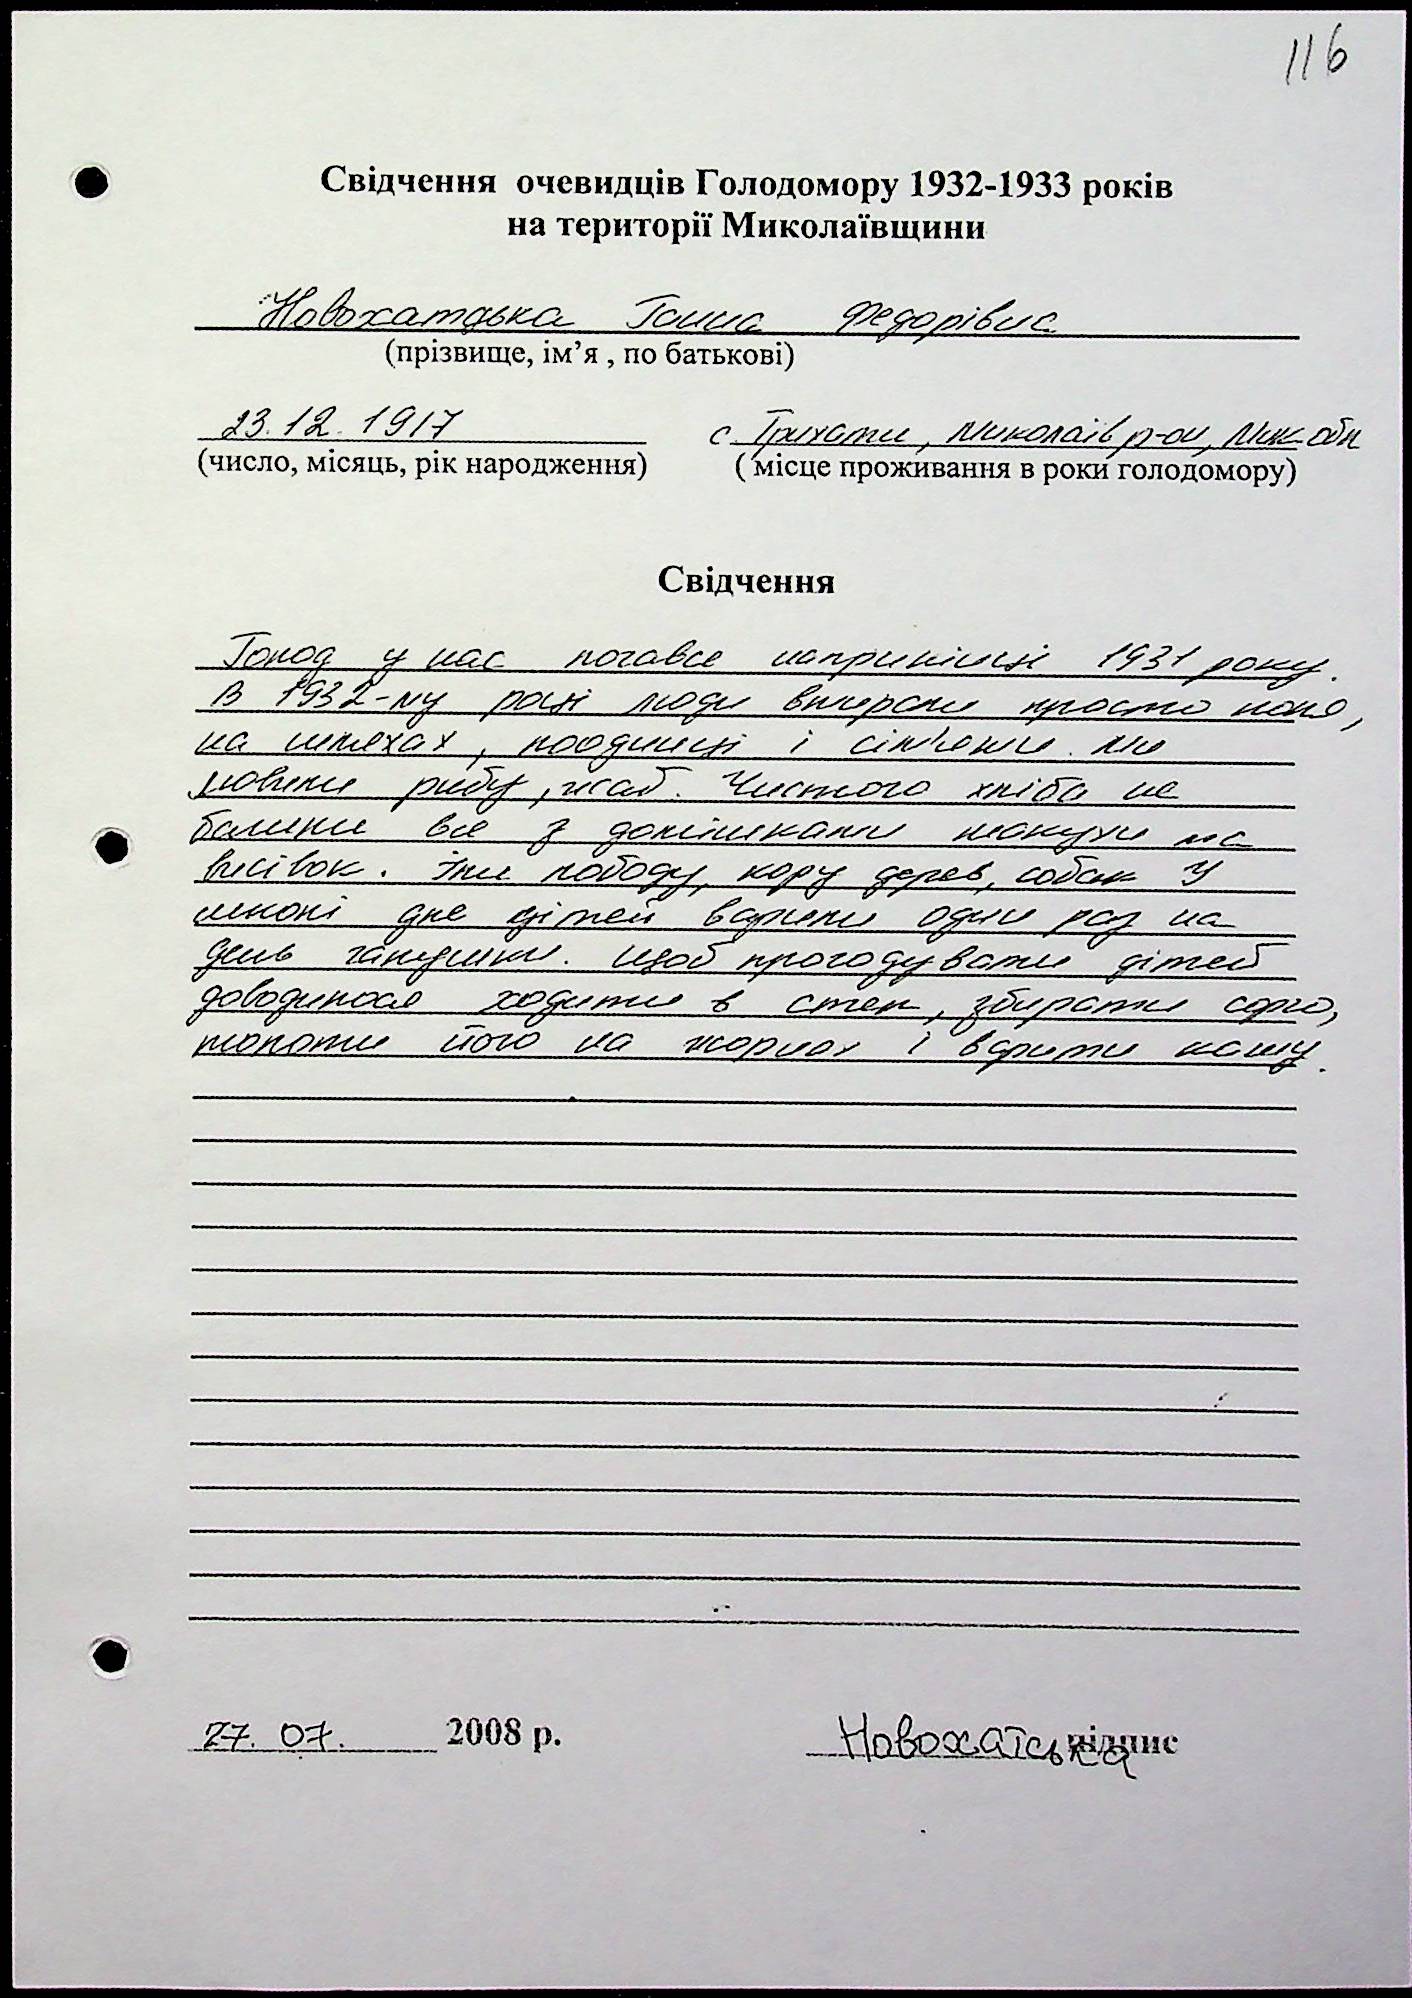 116
Свідчення очевидців Голодомору 1932-1933 років
на території Миколаївщини
Новохатдька Ганна Федорівна
(прізвище, ім’я , по батькові)
23.12.1917
с. Трихати, Миколаїв р-он, Мик обл
(число, місяць, рік народження)
( місце проживання в роки голодомору)
Свідчення
Голод у нас почався наприкінці 1931 року.
В 1932-му році люди вмирали просто
на шляхах, поодинці і сім'ями. Ми
ловили рибу, жаб. Чистого хліба не
бачили все з домішками макухи та
висівок. Їли лободу, кору дерев, собак У
школі для дітей варили один раз на
день галушки. Щоб прогодувати дітей
доводилося ходити в степ, збирати
толоти його на жорнах і варити кашу.
27. 07. 2008 р.
Новохатська
підпис